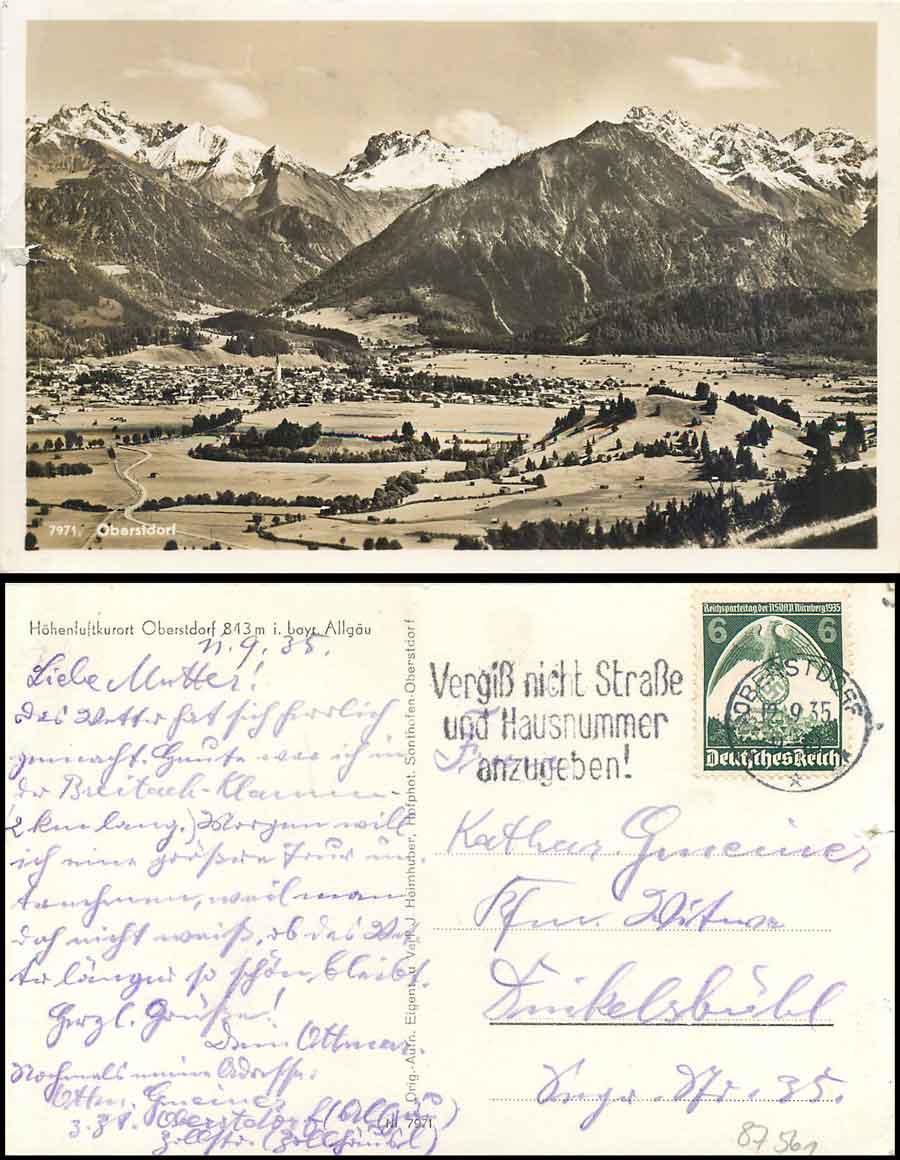 7971, Oberstdorf
Höhenluftkurort Oberstdorf 843 m i. bayr. Allgäu
11.9.35.
Liebe Mutter!
Das Wetter hat sich herrlich
gemacht. Heute war ich in
der Breitach-Klamm
2 km lang.) Morgen will
ich eine größere Tour un-
ternehmen, weil man
doch nicht weiß, ob das Wet-
ter länger so schön bleibt.
Herzl. Grüße!
Dein Ottmar.
Nochmals meine Adresse:
Ottm. Gmeiner
z. Zt. Oberstdorf (Allgäu)
Zollstr. (Zollhäusl)
Orig.-Aufn. Eigent. u. Verl. J. Heimhuber, Hofphot. Sonthofen-Oberstdorf
Nr. 7971
Vergiß nicht Straße
und Hausnummer
anzugeben!
Reichsparteitag der NSDAP Nürnberg 1935
6 6
Deutsches Reich
OBERSTDORF
12.9.35
Frau
Kathar. Gmeiner
Kfm. Witwe
Dinkelsbühl
Segr. Str. 35.
87561